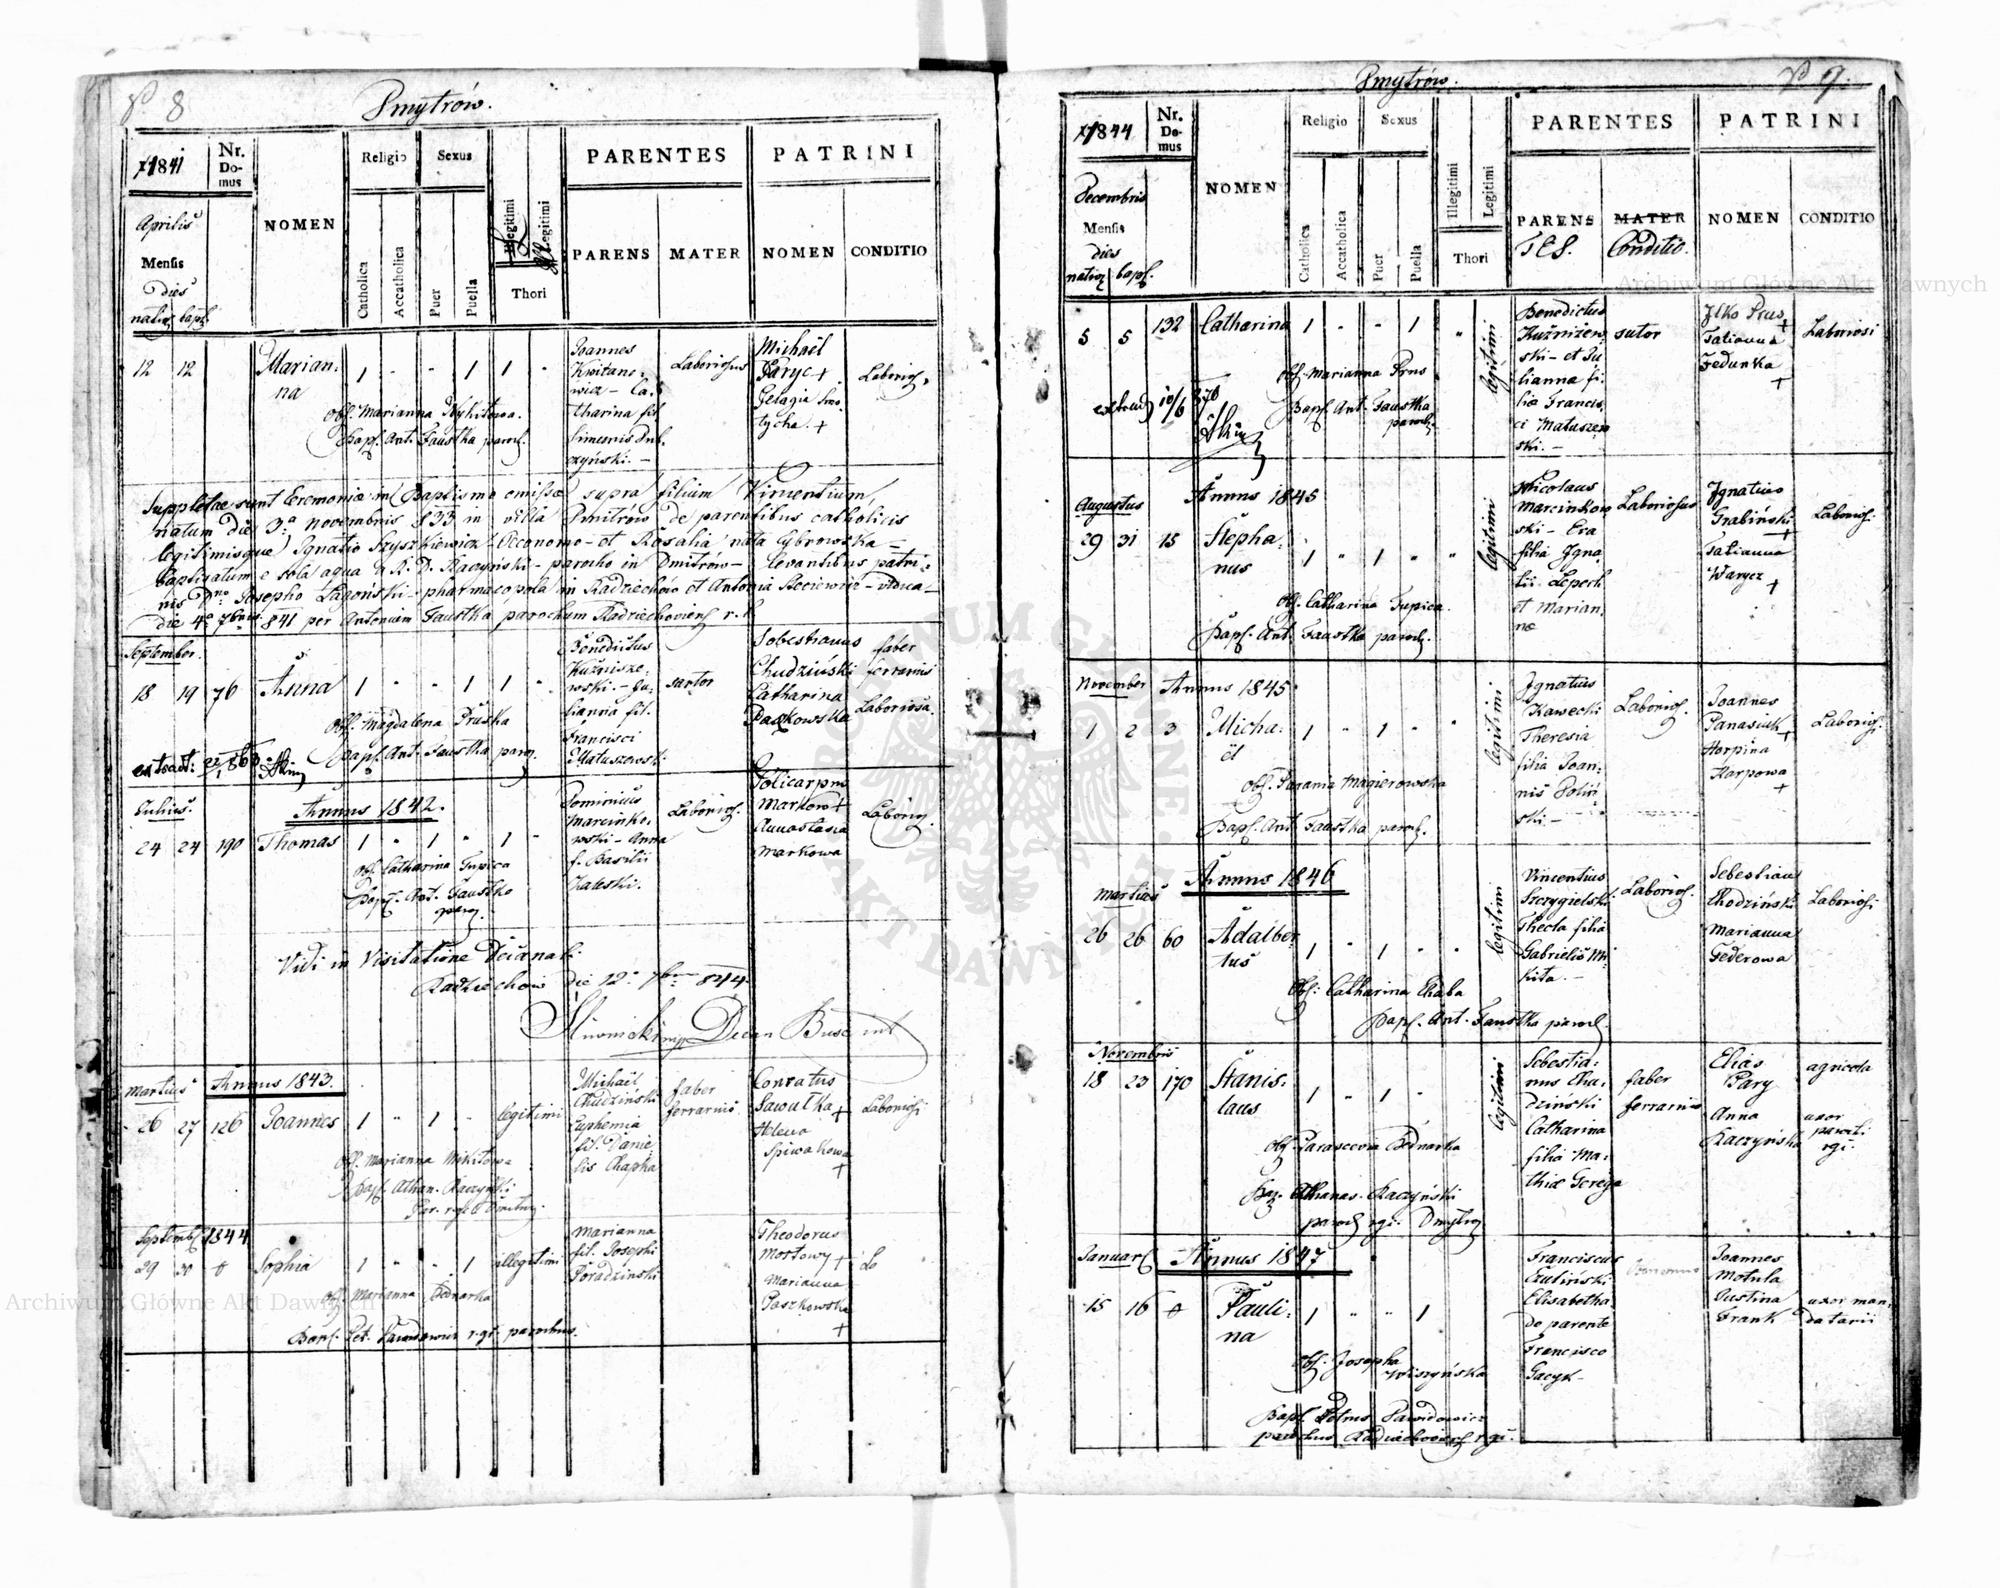 P. 8
Dmytrów.
1841
Nr. Domus
NOMEN
Religio
Sexus
Catholica
Accatholica
Puer
Puella
Illegitimi
Legitimi
Thori
PARENTES
PATRINI
PARENS
MATER
NOMEN
CONDITIO
Aprilis
Mensis
dies
natio bapt.
12 12 Marian-
na
1 " " 1 1 "
Joannes
wicz – Ca-
tharina fil.
Laboriosus
Michaël
Paryc +
Pelagia Smo-
tycha. +
Laborios.
Obs. Marianna Nykitowa.
Bapt. Ant. Faustka paroch.
Suppletae sunt Ceremoniae in Baptismo omissae supra filium Vincentium,
natum die 3a novembris 833 in villa Dmitrów de parentibus catholicis
legitimisque Ignatio Szyszkiewicz Oeconomo – et Rosalia nata Cybrowska –
baptizatum e sola aqua a R. D. Raczyński – parocho in Dmitrów – levantibus patri-
nis Dno Josepho Lagoński – pharmacopola in Radziechów et Antonia – vidua –
die 4a 7bris 841 per Antonium Faustka parochum Radziechoviens r. l.
September.
18 19 76 Anna 1 " " 1 1 "
Benedictus
Kuźnisze-
wski. – Ju-
lianna fil.
Francisci
Matuszewski
sartor
Sobestianus
Chudziński
Catharina
Paszkowska
faber
ferrarius
Laboriosa.
Obs. Magdalena Pruska
Bapt. Ant. Faustka paroch.
extract:
Julius.
Annus 1842.
24 24 190 Thomas 1 " 1 " 1 "
Dominicus
Marcinko-
wski – Anna
f. Basilii
Zaleski.
Laborios.
Policarpus
Markow +
Anastasia
Markowa
Laborios.
Obs. Catharina Tupica
Bapt. Ant. Faustka
paroch.
Vidi in Visitatione Decanali
Radziechów die 12a 7bris 844.
Decan Busc
Martius
Annus 1843.
26 27 126 Joannes 1 " 1 " legitimi
Michaël
Chudziński
Euphemia
fil. Danie-
lis Chapka
faber
ferrarius
Conratus
Sawutka +
Helena
Spiwakowa
+
Laboriosi
Obs. Marianna Mikitowa
Bapt. Athan. Raczyński
Par. r. g. Dmitrow.
Septemb. 1844
29 30 Sophia 1 " " 1 illegitimi
Marianna
fil. Josephi
Poradzinski
Theodorus
Mostowy +
Marianna
Paszkowska
+
Obs. Marianna Bednarka
Bapt. Pet. Dawidowicz r. g. parochus.
Dmytrów.
P 9.
1844
Nr. Domus
NOMEN
Religio
Sexus
Catholica
Accatholica
Puer
Puella
Illegitimi
Legitimi
Thori
PARENTES
PATRINI
PARENS
TES.
MATER
Conditio.
NOMEN
CONDITIO
Decembris
Mensis
dies
natio bapt.
5 5 132 Catharina 1 " " 1 " legitimi
Benedictus
Kuźniżew-
ski – et Ju-
lianna fi-
lia Francis-
ci Matuszew-
ski. –
sutor
Ilko Prus +
Tatianna
Fedunka
+
Laboriosi
Obs. Marianna Prus
Bapt. Ant. Faustka
paroch.
Augustus
Annus 1845
29 31 15 Stepha-
nus
1 " 1 " " legitimi
Nicolaus
Marcinkow
ski – Eva
filia Igna
tii Lepech
et Marian-
nae
Laboriosus
Ignatius
Grabiński +
Tatianna
Warycz +
Laboriosi.
Obs. Catharina Tupica.
Bapt. Ant. Faustka paroch.
November
Annus 1845
1 2 3 Micha-
ël
1 " 1 " " legitimi
Ignatius
Kawecki
Theresia
filia Joan-
nis Poliń-
ski. –
Laborios.
Joannes
Panasiuk +
Horpina
Karpowa
+
Laboriosi.
Obs. Parania Magierowska
Bapt. Ant. Faustka paroch.
Martius
Annus 1846
26 26 60 Adalber-
tus
1 " 1 " " legitimi
Vincentius
Szczygielski
Thecla filia
Gabrielis Mi-
kita. –
Laborios.
Sebestian
Chodziński
Marianna
Federowa
Laboriosi
Obs: Catharina Chaba
Bapt. Ant. Faustka paroch.
Novembris
18 23 170 Stanis-
laus
1 " 1 " legitimi
Sebestia-
nus Chu-
dziński
Catharina
filia Ma-
thiae Gerega
faber
ferrarius
Elias
Pary
Anna
Raczyńska
agricola
uxor
parochi
rgi.
Obs. Parascevia Bednarka
Bap. Athanas. Raczyński
paroch rgi. Dmytrow
Januar.
Annus 1847
15 16 Pauli-
na
1 " " 1
Franciscus
Elisabetha
de parente
Francisco
Gacyk –
Joannes
Motula
Justina
Frank
uxor man-
datarii
Obs. Josepha
Wiszyńska
Bapt. Petrus Dawidowicz
parochus Radziechoviens r. gi.
Archiwum Główne Akt Dawnych
Archiwum Główne Akt Dawnych
Archiwum Główne Akt Dawnych
ARCHIWUM GŁÓWNE AKT DAWNYCH